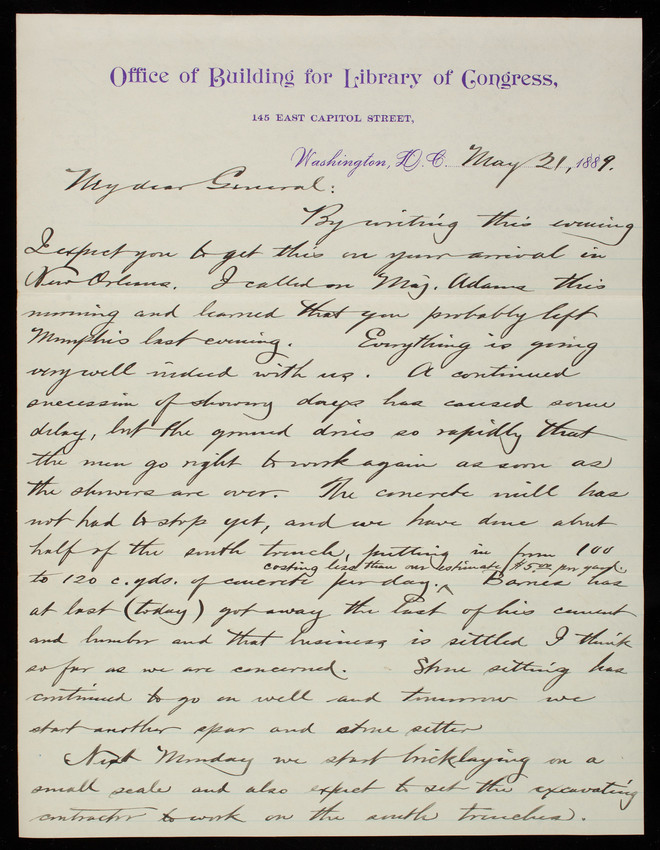 Office of Building for Library of Congress,
145 EAST CAPITOL STREET,
Washington, D. C. May 21, 1889.
My dear General:
By writing this evening
I expect you to get this on your arrival in
New Orleans. I called on Maj. Adams this
morning and learned that you probably left
Memphis last evening. Everything is going
very well indeed with us. A continued
succession of showery days has caused some
delay, but the ground dries so rapidly that
the men go right to work again as soon as
the showers are over. The concrete mill has
not had to stop yet, and we have done about
half of the south trench, putting in from 100
costing less than our estimate, $5.00 per yard.
to 120 c. yds. of concrete per day.^ Barnes has
at last (today) got away the last of his cement
and lumber and that business is settled I think
so far as we are concerned. Stone setting has
continued to go on well and tomorrow we
start another spar and stone setter
Next Monday we start bricklaying on a
small scale and also expect to set the excavating
contractor to work on the south trenches.